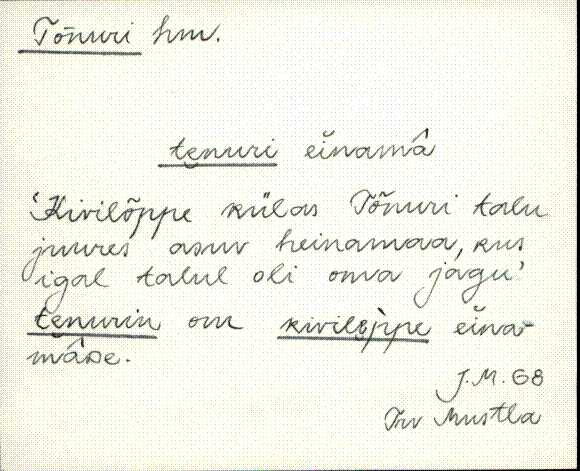 Tõnuri hm.
tenuri einamâ
'Kivilõppe külas Tõnuri talu
juures asuv heinamaa, kus
igal talul oli oma jagu'
tenurin om kivilejppe eina-
mâse.
J.M. 68
Trv Mustla